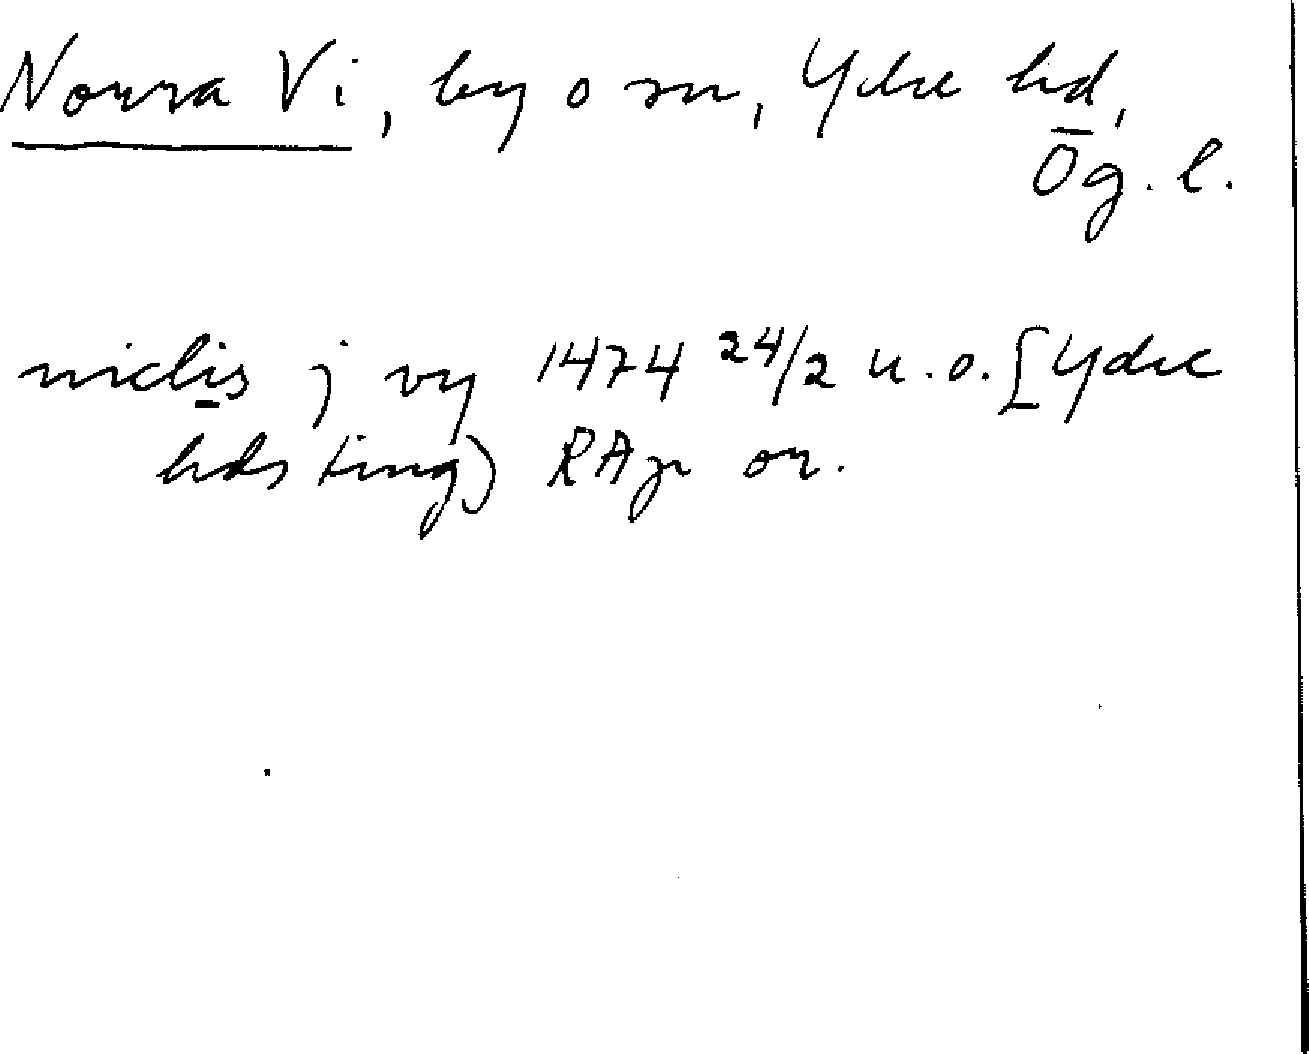 Norra Vi, by o sn, Ydre hd,
Ög. l.
niclis j vy 1474 24/2 u.o. [Ydre
hds ting) RAp or.